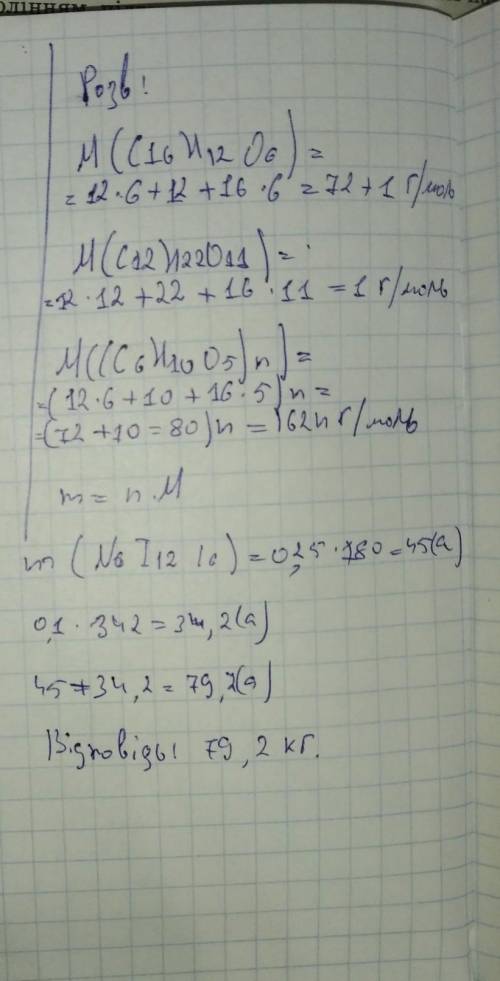 Розв!
M(C16H12O6) =
= 12·6+12+16·6 = 72+1 г/моль
M(C12H22O11) =
= 12·12+22+16·11 = 1 г/моль
M((C6H10O5)n) =
=(12·6+10+16·5)n =
=(72+10=80)n = 162n г/моль
m = n·M
m(N6 I12 Io) = 0,25·180=45(а)
0,1·342=34,2(а)
45+34,2=79,2(а)
Відповідь! 79,2 кг.